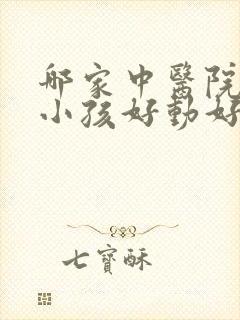 那家中醫院
小孩好動好
七寶酥